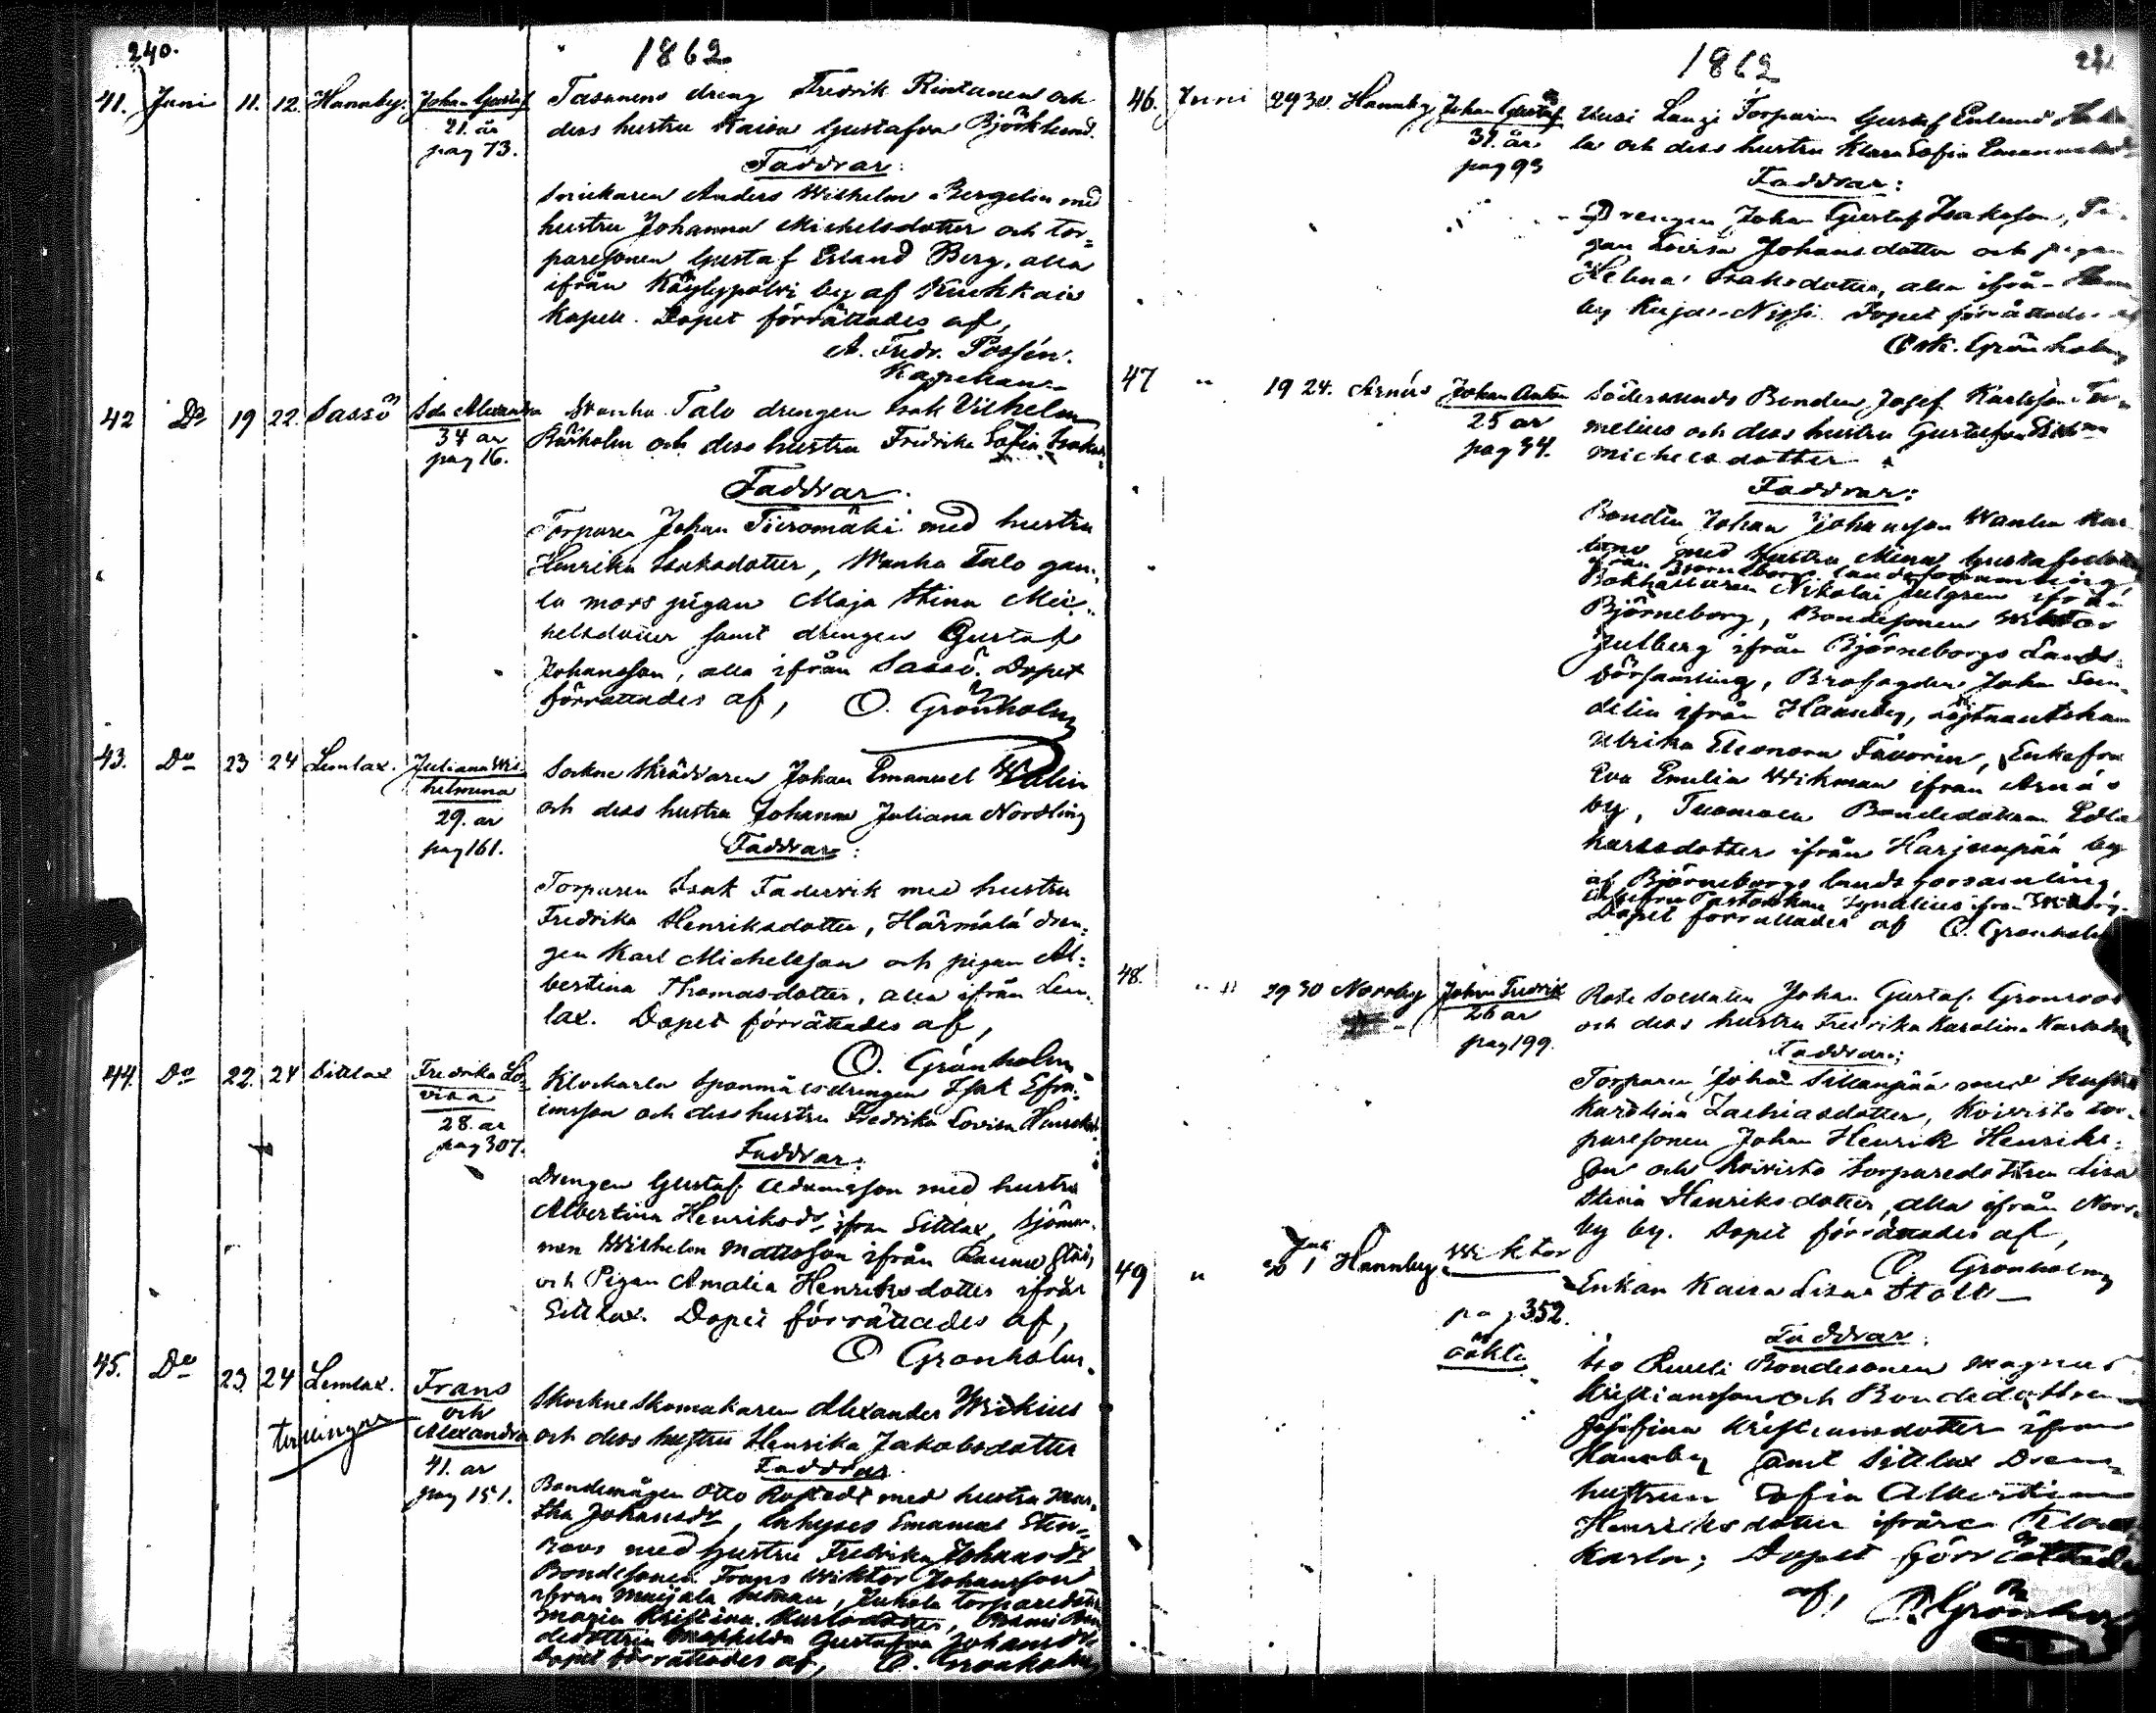 240.
1862
41. Juni 11. 12. Hannby. Johan Gustaf
21. år
pag 73.
Tasanens dreng Fredrik Rintanen och
dess hustru Kaisa Gustafva Björklund.
Faddrar:
Snickaren Anders Wilhelm Bergelin med
hustru Johanna Michelsdotter och tor=
paresonen Gustaf Erland Berg, alla
ifrån Köylypolvi by af
kapell. Dopet förrättades af,
A. Fredr. Possén.
Kapellan
42 Do 19 22. Sassö Ida Alexandra
34 år
pag 16.
Wanha Talo drengen Isak Vilhelm
och dess hustru Fredrika Sofia
Faddrar:
Torparen Johan Tiiromäki med hustru
Henrika Isaksdotter, Wanha Talo gam=
la mors pigan Maja Stina Mic=
helsdotter samt drengen Gustaf
Johansson, alla ifrån Sassö. Dopet
förrättades af, O. Grönholm
43. Do 23 24 Lemlax. Juliana Wil=
helmina
29. år
pag 161.
Sockne Skräddaren Johan Emanuel Walin
och dess hustru Johanna Juliana Nordling
Faddrar:
Torparen Isak Fadervik med hustru
Fredrika Henriksdotter, Härmälä dren=
gen Karl Michelsson och pigan Al=
bertina Thomasdotter, alla ifrån Lem=
lax. Dopet förrättades af,
O. Grönholm
44. Do 22. 24 Sittlax Fredrika Lo=
visa
28. år
pag 307.
Klockarla Spanmålsdrengen Isak Efra=
imsson och dess hustru Fredrika Lovisa
Faddrar:
Drengen Gustaf Adamsson med hustru
Albertina Henriksdr ifrån Sittlax, Sjöman=
nen Wilhelm Mattsson ifrån Raumo stad,
och Pigan Amalia Henriksdotter ifrån
Sittlax. Dopet förrättades af,
O Grönholm.
45. Do 23. 24 Lemlax. Frans
och
Alexandra
tvillingar
41. år
pag 151.
Skomakaren Alexander
och dess hustru Henrika Jakobsdotter
Faddrar
Bondemågen Otto med hustru Mar=
tha Johansdr, Emanuel Sten=
roos med hustru Fredrika Johansdr
Bondesonen Frans Wiktor Johansson
ifrån Maijala Torparedottren
Maria Kristina Karlsdotter,
Gustafva Johansdr
Dopet förrättades af, O. Grönholm
1862
241
46. Juni 29 30. Hannby Johan Gustaf
31. år
pag 93
Uusi Lauri Torparen Gustaf Enlund
och dess hustru Klara Sofia
Faddrar:
Drengen Johan Gustaf Isaksson, Pi=
gan Lovisa Johansdotter och pigan
Helena Isaksdotter, alla ifrån
by Dopet förrättades af
Osk. Grönholm
47 " 19 24. Arnäs Johan Anton
25 år
pag 34.
Södersunds Bonden Josef Karlsson
och dess hustru Gustafva
Michelsdotter
Faddrar:
Bonden Johan Johansson Wanha
med hustru Mina Gustafsdotter
ifrån Björneborgs landsförsamling
Bokhållaren Nikolai ifrån
Björneborg, Bondesonen Wiktor
ifrån Björneborgs Lands=
församling, Brofogden Johan Sun=
delin ifrån Hannby, löjtnantskan
Ulrika Eleonora Favorin, Enkefru
Eva Emelia Wikman ifrån Arnäs
by, Tuomola Bondedottren Edla
Karlsdotter ifrån Harjunpää by
af Björneborgs landsförsamling,
Enkefru Pastorskan
Dopet förrättades af O. Grönholm
48. " 29 30 Norrby Johan Fredrik
26 år
pag 199.
Rote Soldaten Johan Gustaf Grönroos
och dess hustru Fredrika Karolina
Faddrar:
Torparen Johan Sillanpää med hustru
Karolina Zachiasdotter, Koivisto tor=
paresonen Johan Henrik Henriks=
son och Koivisto torparedottren Lisa
Stina Henriksdotter, alla ifrån Norr=
by by. Dopet förrättades af,
O. Grönholm
49 " 30 Juli 1 Hannby Wiktor
pag 352.
oäkta
Enkan Kaisa Lisa Stoll
Faddrar:
Iso Ruueli Bondesonen Magnus
Kristiansson och Bondedottren
Josefina Kristiansdotter ifrån
Hannby samt Sittlax
hustrun Sofia Albertina
Henriksdotter ifrån Kloc=
karla; Dopet förrättades
af, O. Grönholm